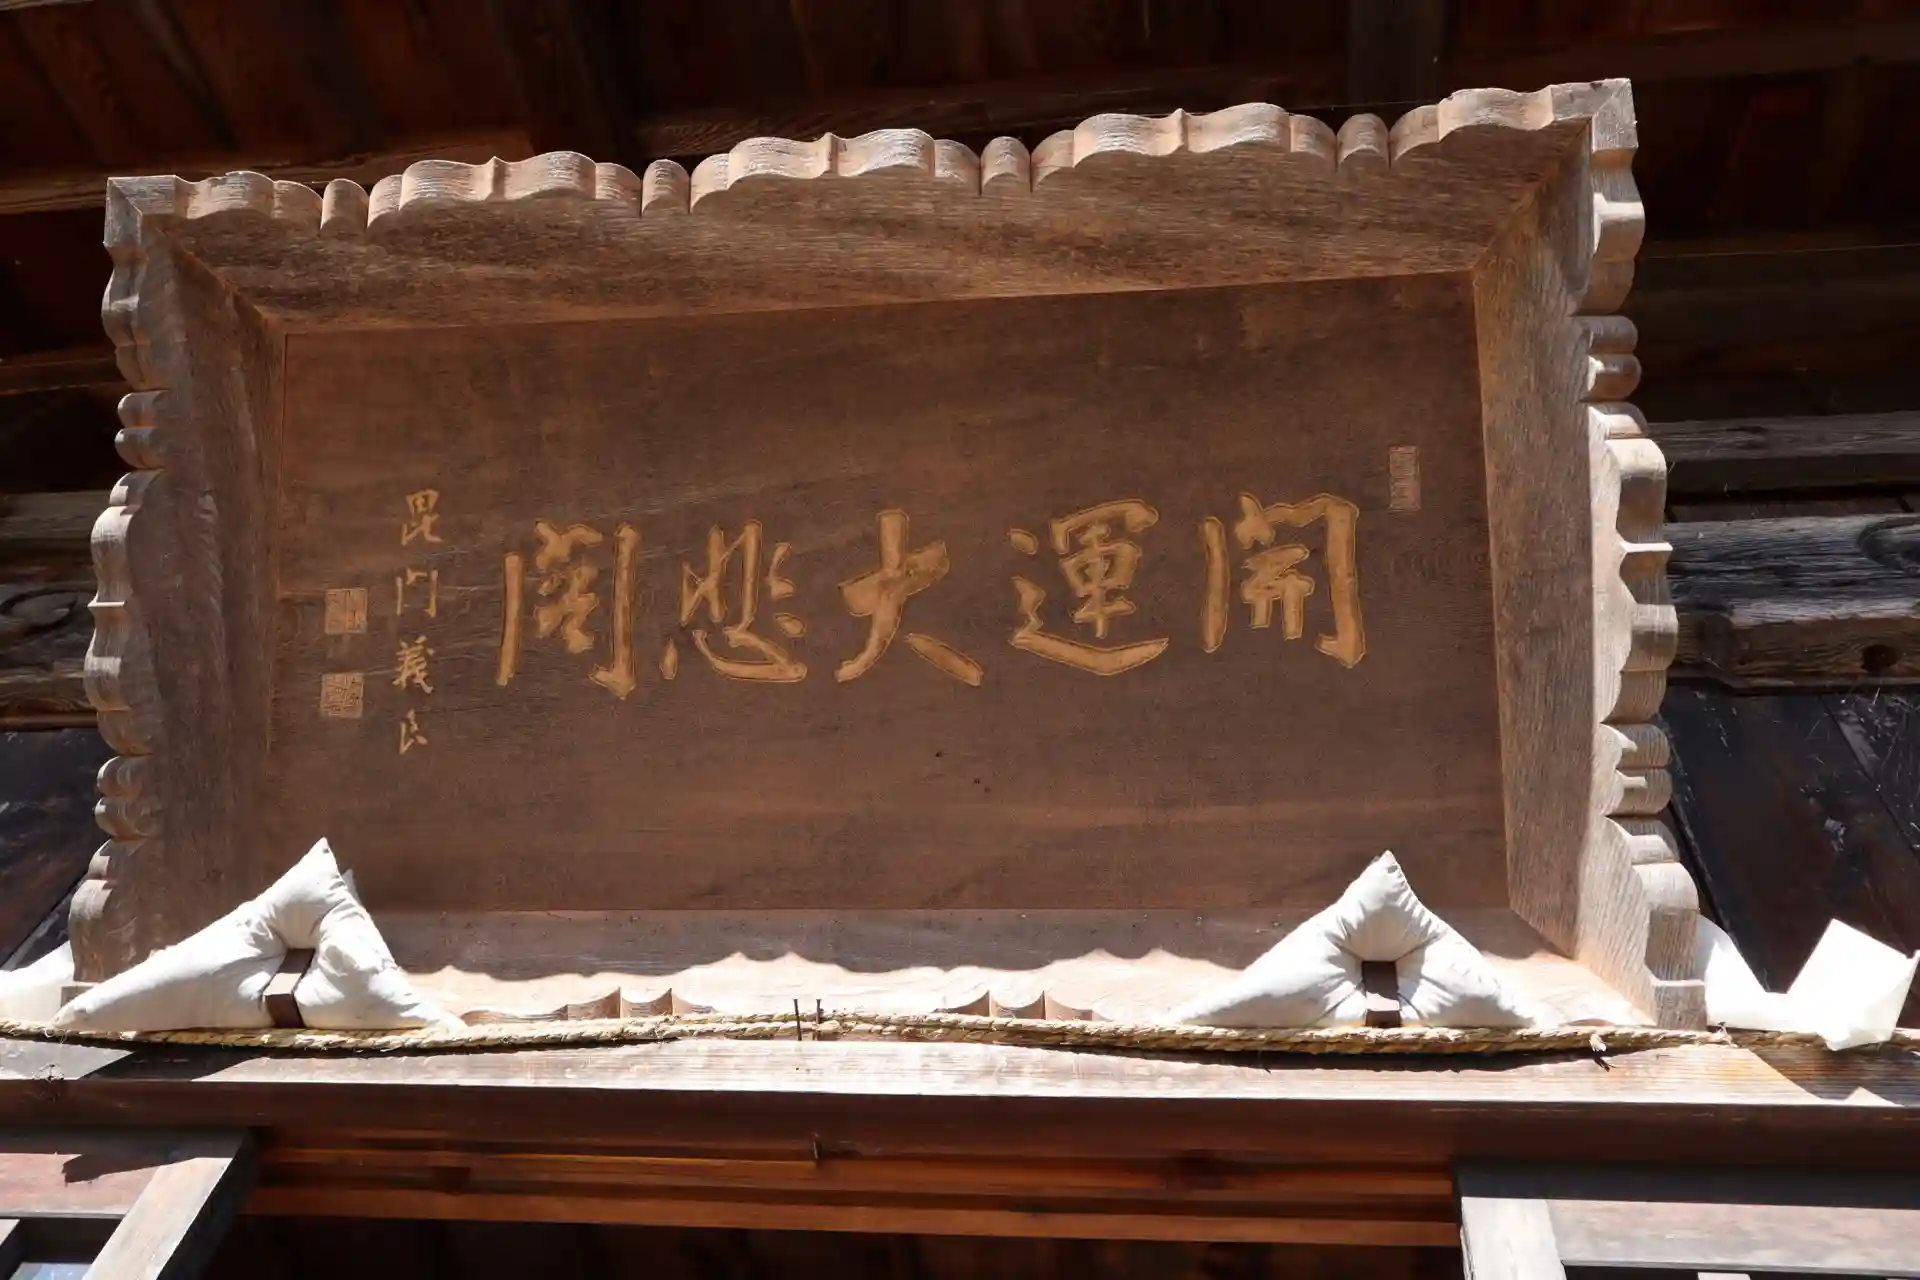 開運大悲閣
毘門義良